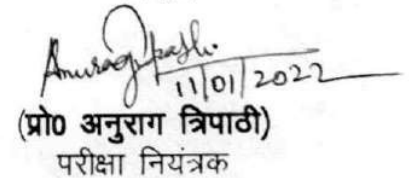 Anurag Tripathi
11/01/2022
(प्रो0 अनुराग त्रिपाठी)
परीक्षा नियंत्रक